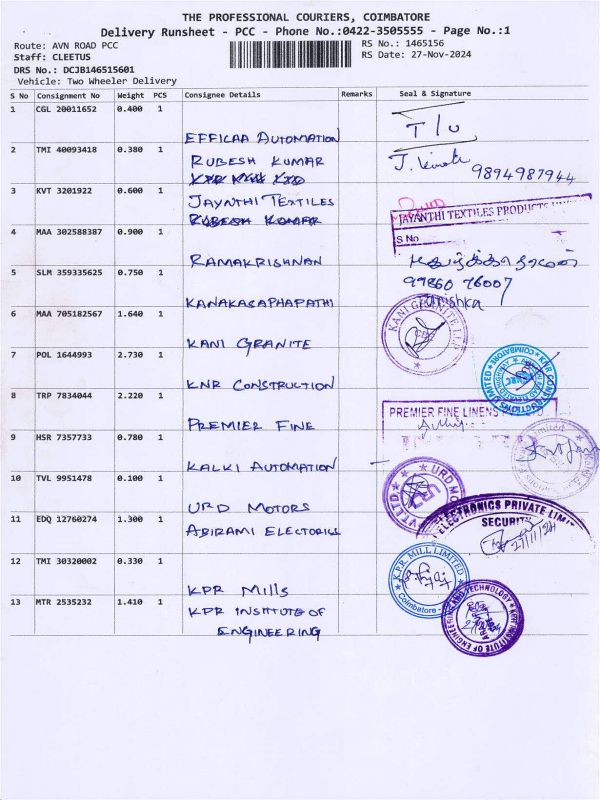 THE PROFESSIONAL COURIERS, COIMBATORE
Delivery Runsheet - PCC - Phone No.:0422-3505555 - Page No.:1
Route: AVN ROAD PCC RS No.: 1465156
Staff: CLEETUS RS Date: 27-Nov-2024
DRS No.: DCJB146515601
Vehicle: Two Wheeler Delivery
S No Consignment No Weight PCS Consignee Details Remarks Seal & Signature
1 CGL 20011652 0.400 1
EFFICAA AUTOMATION T/O
2 TMI 40093418 0.380 1
RUBESH KUMAR 9894987944
3 KVT 3201922 0.600 1
JAYNTHI TEXTILES
RUBESH KUMAR
JAYANTHI TEXTILES PRODUCTS
S No
4 MAA 302588387 0.900 1
RAMAKRISHNAN
99860 76007
5 SLM 359335625 0.750 1
KANAKASAPHAPATHI Tarishka
6 MAA 705182567 1.640 1
KANI GRANITE
KANI GRANITE
7 POL 1644993 2.730 1
KNR CONSTRUCTION
KNR CONSTRUCTIONS LIMITED
COIMBATORE
8 TRP 7834044 2.220 1
PREMIER FINE
PREMIER FINE LINENS
9 HSR 7357733 0.780 1
KALKI AUTOMATION
Limited
10 TVL 9951478 0.100 1
URD MOTORS
URD MO
VT LTD
11 EDQ 12760274 1.300 1
ABIRAMI ELECTORICS
ELECTRONICS PRIVATE LIMI
SECURITY
27/11/24
12 TMI 30320002 0.330 1
KPR MILLS
K.P.R MILL LIMITED
Coimbatore
13 MTR 2535232 1.410 1
KPR INSTITUTE OF
ENGINEERING
KPR INSTITUTE OF ENGINEERING AND TECHNOLOGY